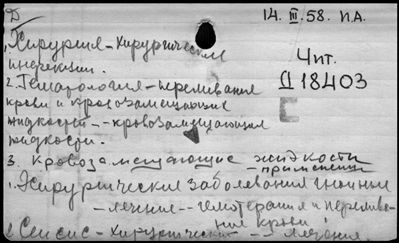 Д
14. III. 58. И.А.
1. Хирургия – хирургические
инфекции.
Чит.
2. Гематология – переливания
Д 18403
крови и кровозамещающие
жидкости – – кровозамещающие
жидкости.
3. Кровозамещающие жидкости
– применение
1. Хирургические заболевания гнойные
– лечение – – гемотерапия и перелива-
ние крови
2. Сепсис – хирургический – – лечение